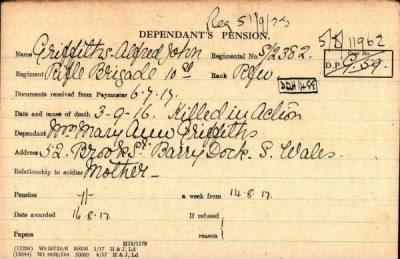 DEPENDANT'S PENSION.
Reg 5/1/9/23
5/8/11962
Name Griffiths Alfred John Regimental No. S/2382.
D.P. G.59
Regiment Rifle Brigade 10th Rank Rfw
Documents received from Paymaster 6.7.17.
Date and cause of death 3-9-16. Killed in Action
Dependant Mrs Mary Ann Griffiths
Address 52. Brook St Barry Dock. S. Wales.
Relationship to soldier Mother
Pension 7/- a week from 14.8.17.
Date awarded 16.8.17. If refused
Papers reason
M10/1170
(13239) Wt 50729/6 30000 1/17 H & J, Ld
(15944) Wt 4436/164 30000 5/17 H & J, Ld